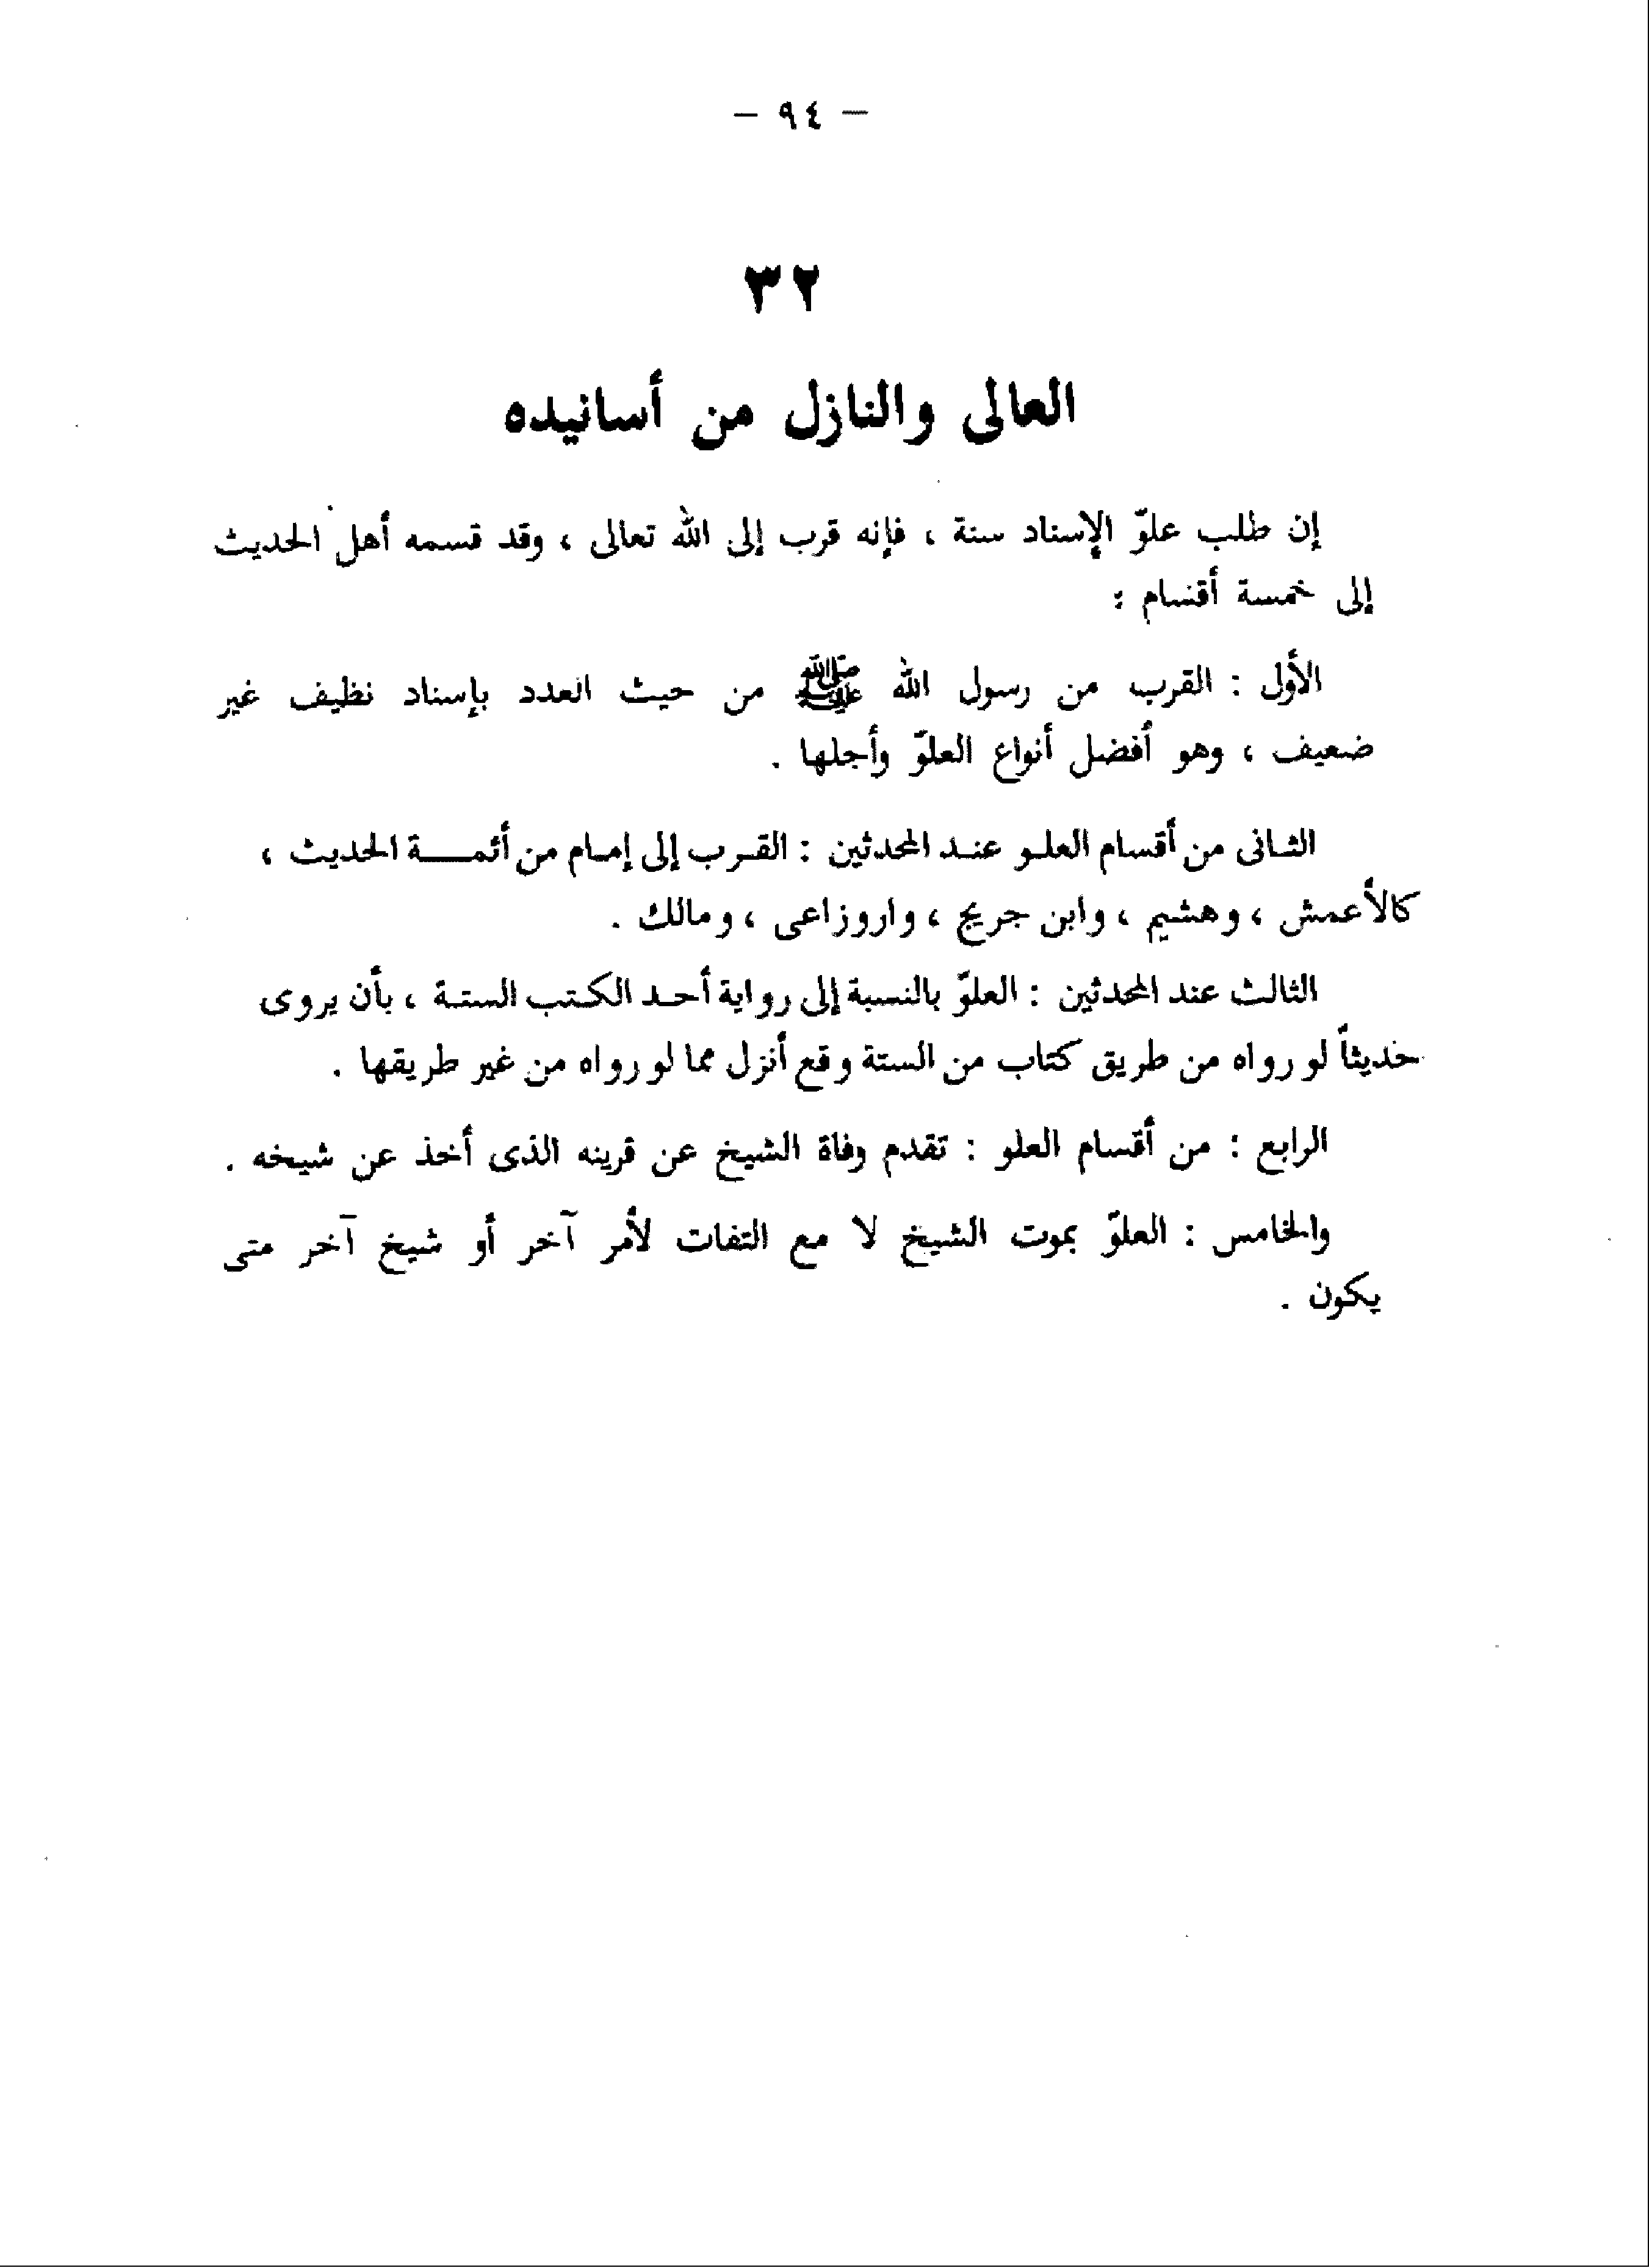 — ٩٤ —
٣٢
العالى والنازل من أسانيده
إن طلب علوّ الإسناد سنة ، فإنه قرب إلى الله تعالى ، وقد قسمه أهل الحديث
إلى خمسة أقسام :
الأول : القرب من رسول الله ﷺ من حيث العدد بإسناد نظيف غير
ضعيف ، وهو أفضل أنواع العلوّ وأجلها .
الثانى من أقسام العلو عند المحدثين : القرب إلى إمام من أئمة الحديث ،
كالأعمش ، وهشيم ، وابن جريج ، واروزاعى ، ومالك .
الثالث عند المحدثين : العلوّ بالنسبة إلى رواية أحد الكتب الستة ، بأن يروى
حديثاً لو رواه من طريق كتاب من الستة وقع أنزل مما لو رواه من غير طريقها .
الرابع : من أقسام العلو : تقدم وفاة الشيخ عن قرينه الذى أخذ عن شيخه .
والخامس : العلوّ بموت الشيخ لا مع التفات لأمر آخر أو شيخ آخر متى
يكون .